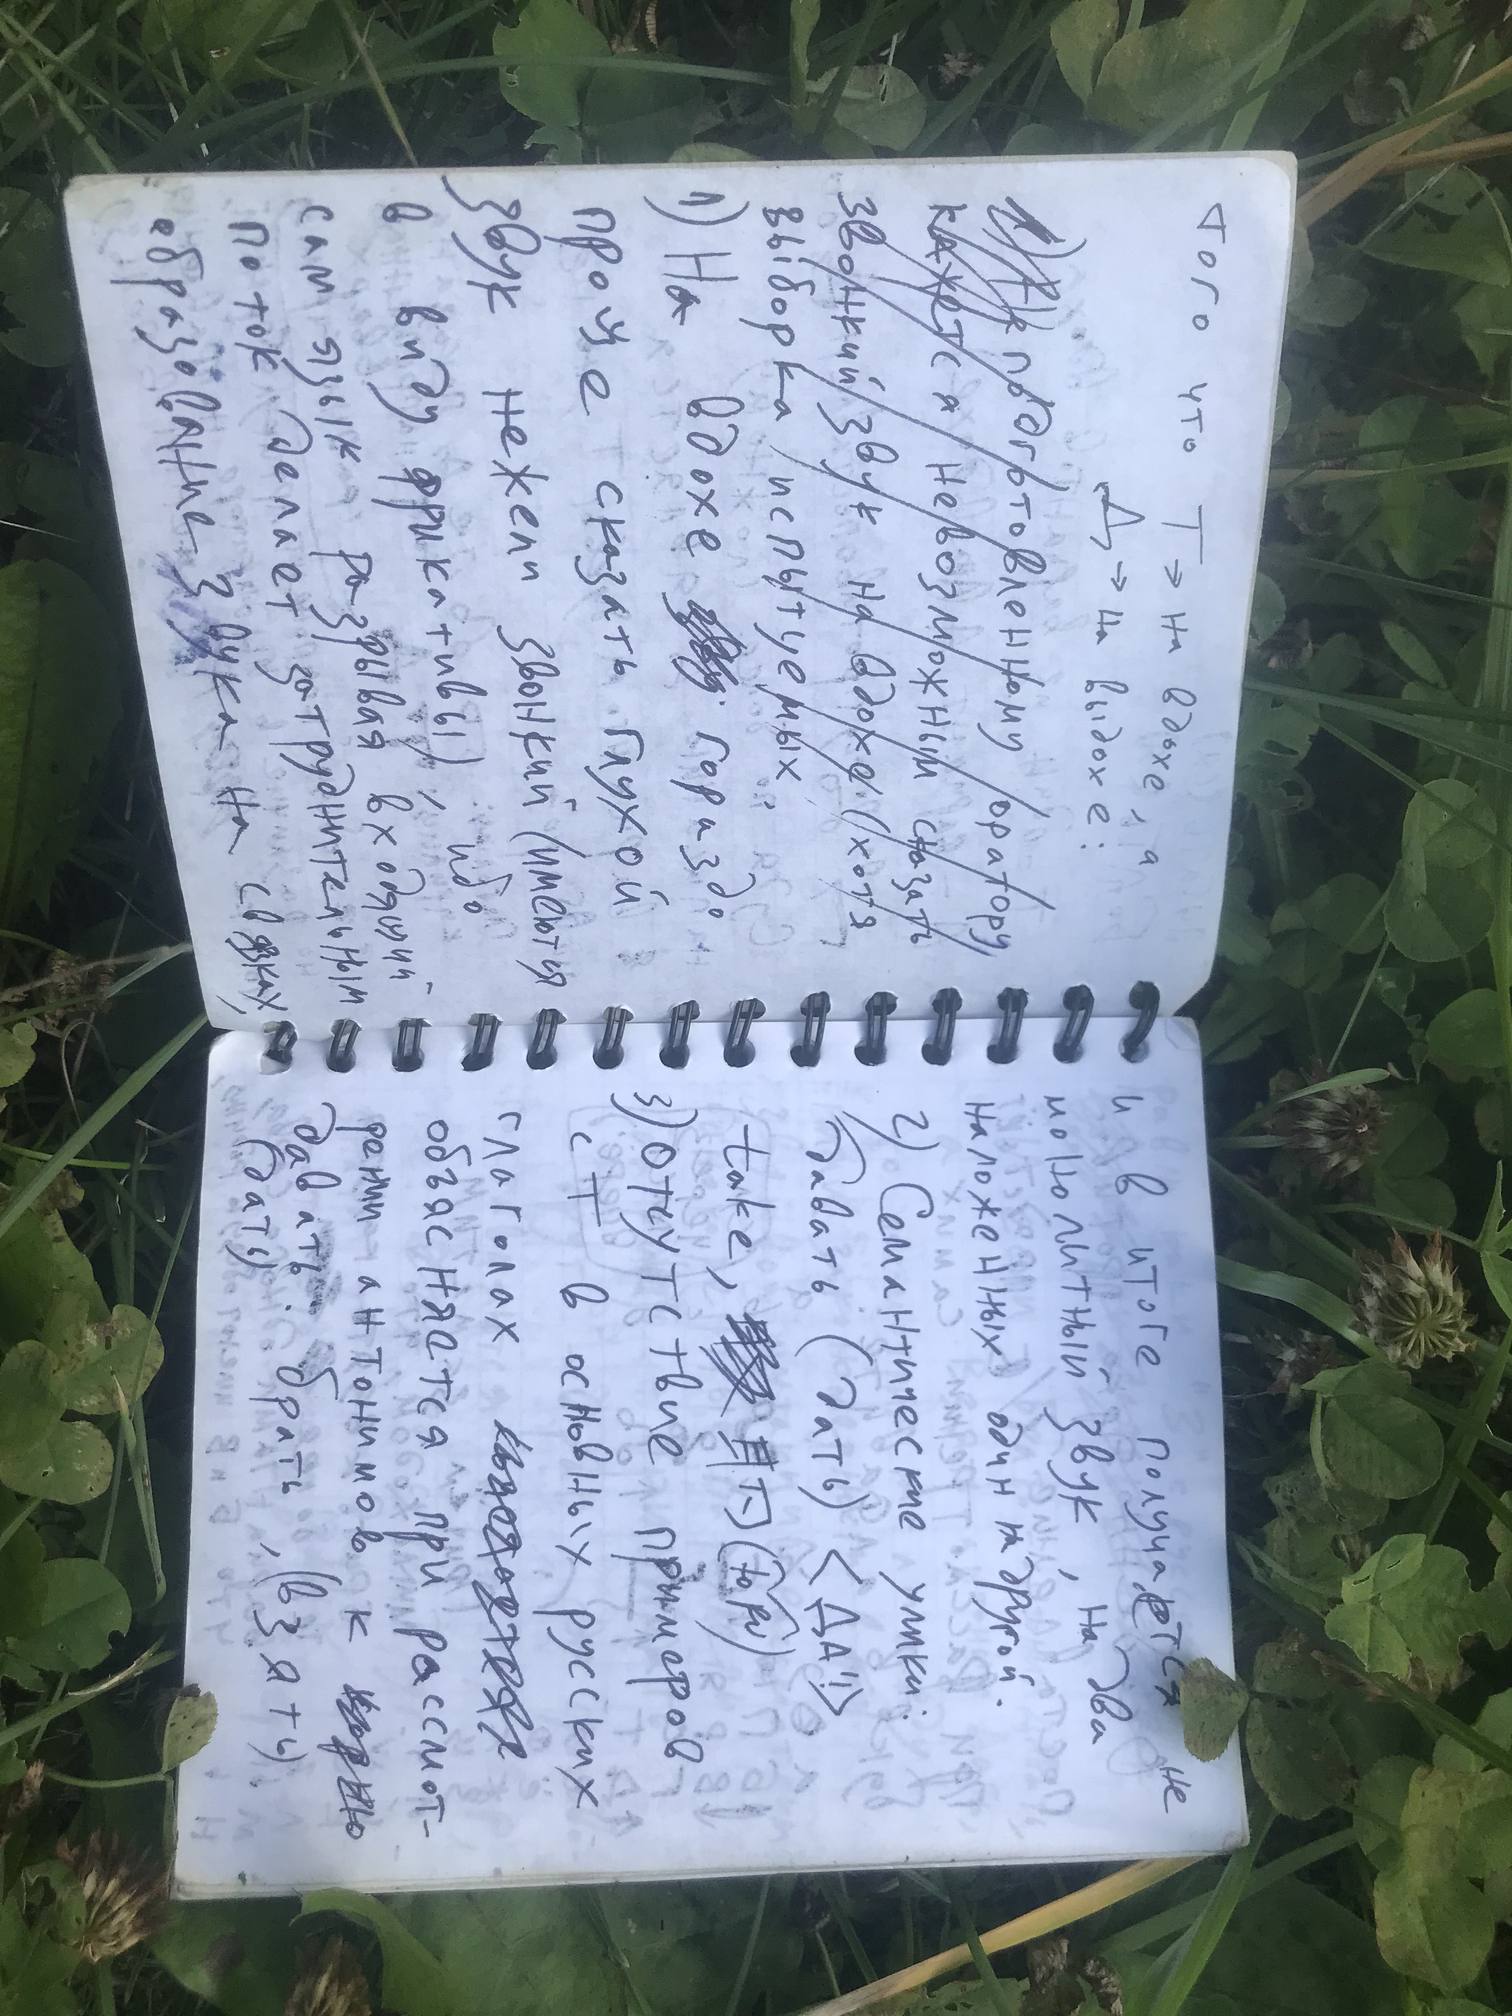 того что Т → на вдохе, а
Д → на выдохе:
1) К подготовленному оратору
кажется невозможным сказать
звонкий звук на вдохе (хотя
выборка испытуемых
1) На вдохе гораздо
проще сказать глухой
звук нежели звонкий (имеются
в виду фрикативы), ибо
сам язык разрывая входящий
поток делает затруднительным
образование звука на связках,
и в итоге получается не
монолитный звук, на два
наложенных один на другой.
2) Семантические улики:
давать (дать) <ДА!>
take, 取り (tori)
3) Отсутствие примеров
с Т в основных русских
глаголах
объясняется при рассмот-
рении антонимов к
давать: брать, (взять)
(дать)